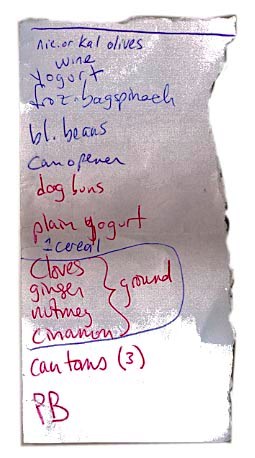 nic. or kal olives
wine
yogurt
froz. bag spinach
bl. beans
can opener
dog buns
plain yogurt
1 cereal
cloves
ginger
nutmeg
cinamon
ground
can toms (3)
PB